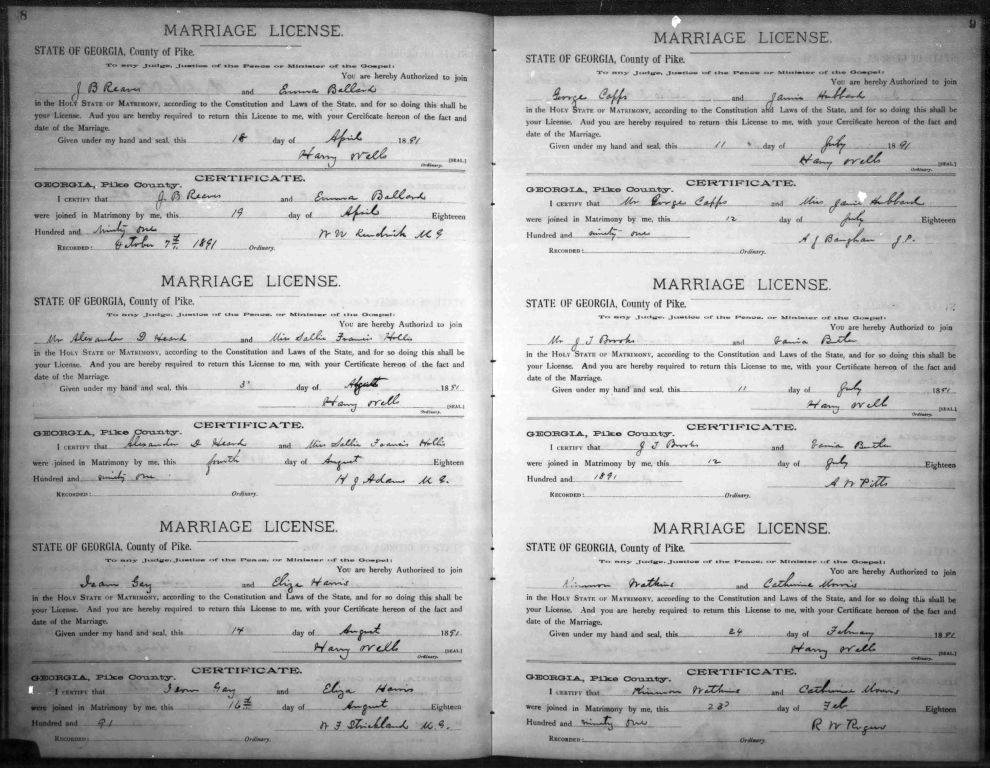 8
MARRIAGE LICENSE.
STATE OF GEORGIA, County of Pike.
To any Judge, Justice of the Peace, or Minister of the Gospel:
You are hereby Authorized to join
J B Reaves and Emma Ballard
in the HOLY STATE OF MATRIMONY, according to the Constitution and Laws of the State, and for so doing this shall be
your License. And you are hereby required to return this License to me, with your Certificate hereof of the fact and
date of the Marriage.
Given under my hand and seal, this 18 day of April 1891
Harry Wells [SEAL]
Ordinary.
CERTIFICATE.
GEORGIA, Pike County.
I CERTIFY that J. B Reaves and Emma Ballard
were joined in Matrimony by me, this 19 day of April Eighteen
Hundred and ninty one W W Kendrick M G
RECORDED: October 7th 1891 Ordinary.
MARRIAGE LICENSE.
STATE OF GEORGIA, County of Pike.
To any Judge, Justice of the Peace, or Minister of the Gospel:
You are hereby Authorized to join
Mr Alexander D Heard and Miss Sallie Francis Hollis
in the HOLY STATE OF MATRIMONY, according to the Constitution and Laws of the State, and for so doing this shall be
your License. And you are hereby required to return this License to me, with your Certificate hereof of the fact and
date of the Marriage.
Given under my hand and seal, this 3 day of August 1891
Harry Wells [SEAL]
Ordinary.
CERTIFICATE.
GEORGIA, Pike County.
I CERTIFY that Alexander D Heard and Miss Sallie Francis Hollis
were joined in Matrimony by me, this fourth day of August Eighteen
Hundred and ninty one H J Adams M. G.
RECORDED: Ordinary.
MARRIAGE LICENSE.
STATE OF GEORGIA, County of Pike.
To any Judge, Justice of the Peace, or Minister of the Gospel:
You are hereby Authorized to join
Isam Gay and Eliza Harris
in the HOLY STATE OF MATRIMONY, according to the Constitution and Laws of the State, and for so doing this shall be
your License. And you are hereby required to return this License to me, with your Certificate hereof of the fact and
date of the Marriage.
Given under my hand and seal, this 14 day of August 1891
Harry Wells [SEAL]
Ordinary.
CERTIFICATE.
GEORGIA, Pike County.
I CERTIFY that Isam Gay and Eliza Harris
were joined in Matrimony by me, this 16th day of August Eighteen
Hundred and 91 W F Strickland M. G.
RECORDED: Ordinary.
9
MARRIAGE LICENSE.
STATE OF GEORGIA, County of Pike.
To any Judge, Justice of the Peace or Minister of the Gospel:
You are hereby Authorized to join
George Capps and Janie Hubbard
in the HOLY STATE OF MATRIMONY, according to the Constitution and Laws of the State, and for so doing this shall be
your License. And you are hereby required to return this License to me, with your Certificate hereof of the fact and
date of the Marriage.
Given under my hand and seal, this 11 day of July 1891
Harry Wells [SEAL]
Ordinary.
CERTIFICATE.
GEORGIA, Pike County.
I CERTIFY that Mr George Capps and Miss Janie Hubbard
were joined in Matrimony by me, this 12 day of July Eighteen
Hundred and ninty one A J Baughan J P.
RECORDED: Ordinary.
MARRIAGE LICENSE.
STATE OF GEORGIA, County of Pike.
To any Judge, Justice of the Peace, or Minister of the Gospel:
You are hereby Authorized to join
Mr J T Brooks and Butler
in the HOLY STATE OF MATRIMONY, according to the Constitution and Laws of the State, and for so doing this shall be
your License. And you are hereby required to return this License to me, with your Certificate hereof of the fact and
date of the Marriage.
Given under my hand and seal, this 11 day of July 1891
Harry Wells [SEAL]
Ordinary.
CERTIFICATE.
GEORGIA, Pike County.
I CERTIFY that J T Brooks and Butler
were joined in Matrimony by me, this 12 day of July Eighteen
Hundred and 1891 A W Pitts
RECORDED: Ordinary.
MARRIAGE LICENSE.
STATE OF GEORGIA, County of Pike.
To any Judge, Justice of the Peace, or Minister of the Gospel:
You are hereby Authorized to join
Kinmon Watkins and Catherine Morris
in the HOLY STATE OF MATRIMONY, according to the Constitution and Laws of the State, and for so doing this shall be
your License. And you are hereby required to return this License to me, with your Certificate hereof of the fact and
date of the Marriage.
Given under my hand and seal, this 24 day of February 1891
Harry Wells [SEAL]
Ordinary.
CERTIFICATE.
GEORGIA, Pike County.
I CERTIFY that Kinmon Watkins and Catherine Morris
were joined in Matrimony by me, this day of Feb Eighteen
Hundred and ninty one R W Rogers
RECORDED: Ordinary.